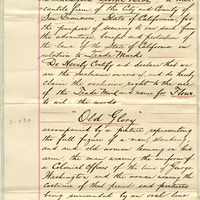 cantile firm of the City and County of
San Francisco, State of California, for
the purpose of securing to our said firm
the advantages, benefits and protection of
the laws of the State of California in
relation to Trade Marks
Do Hereby Certify and declare that we
are the exclusive owners of and do hereby
claim the exclusive right to the use
of the Trade Mark and name for Flour,
to wit: the words
"Old Glory"
accompanied by a picture representing
the full figure of a man
and old woman leaning on his
arm, the man wearing the uniform of
a Colonial Officer of the time of George
Washington and the woman wearing the
costume of that period said picture
being surrounded by an oval line